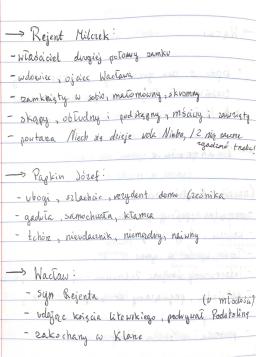 → Rejent Milczek:
- właściciel drugiej połowy zamku
- wdowiec, ojciec Wacława
- zamknięty w sobie, małomówny, skromny
- skąpy, obłudny i podstępny, mściwy i zawzięty
- powtarza Niech się dzieje wola Nieba, / Z nią
zgadzać trzeba!
→ Papkin Józef:
- ubogi szlachcic, rezydent domu Cześnika
- gaduła, samochwała, kłamca
- tchórz, nieudacznik, niemądry, naiwny
→ Wacław:
- syn Rejenta
(w młodości)
- udając księcia litewskiego, podrywał Podstolinę
- zakochany w Klarze